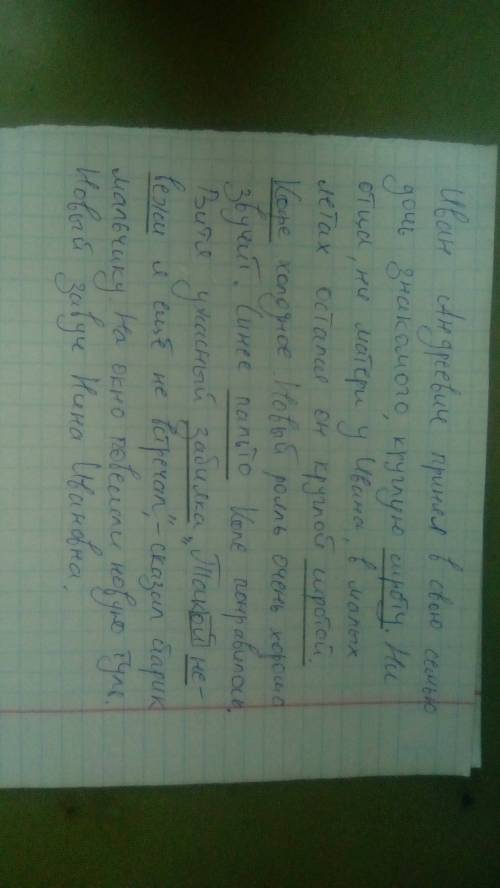 Иван Андреевич принял в свою семью
дочь знакомого, круглую сироту. Ни
отца, ни матери у Ивана, в малых
летах остался он круглой сиротой.
Кофе холодное Новый рояль очень хорошо
звучит. Синее пальто Коле понравилось.
Витя ужасный забияка „Такой не-
вежи я ещё не встречал", - сказал старик
мальчику На окно повесили новую тюль.
Новый завуч Нина Ивановна.